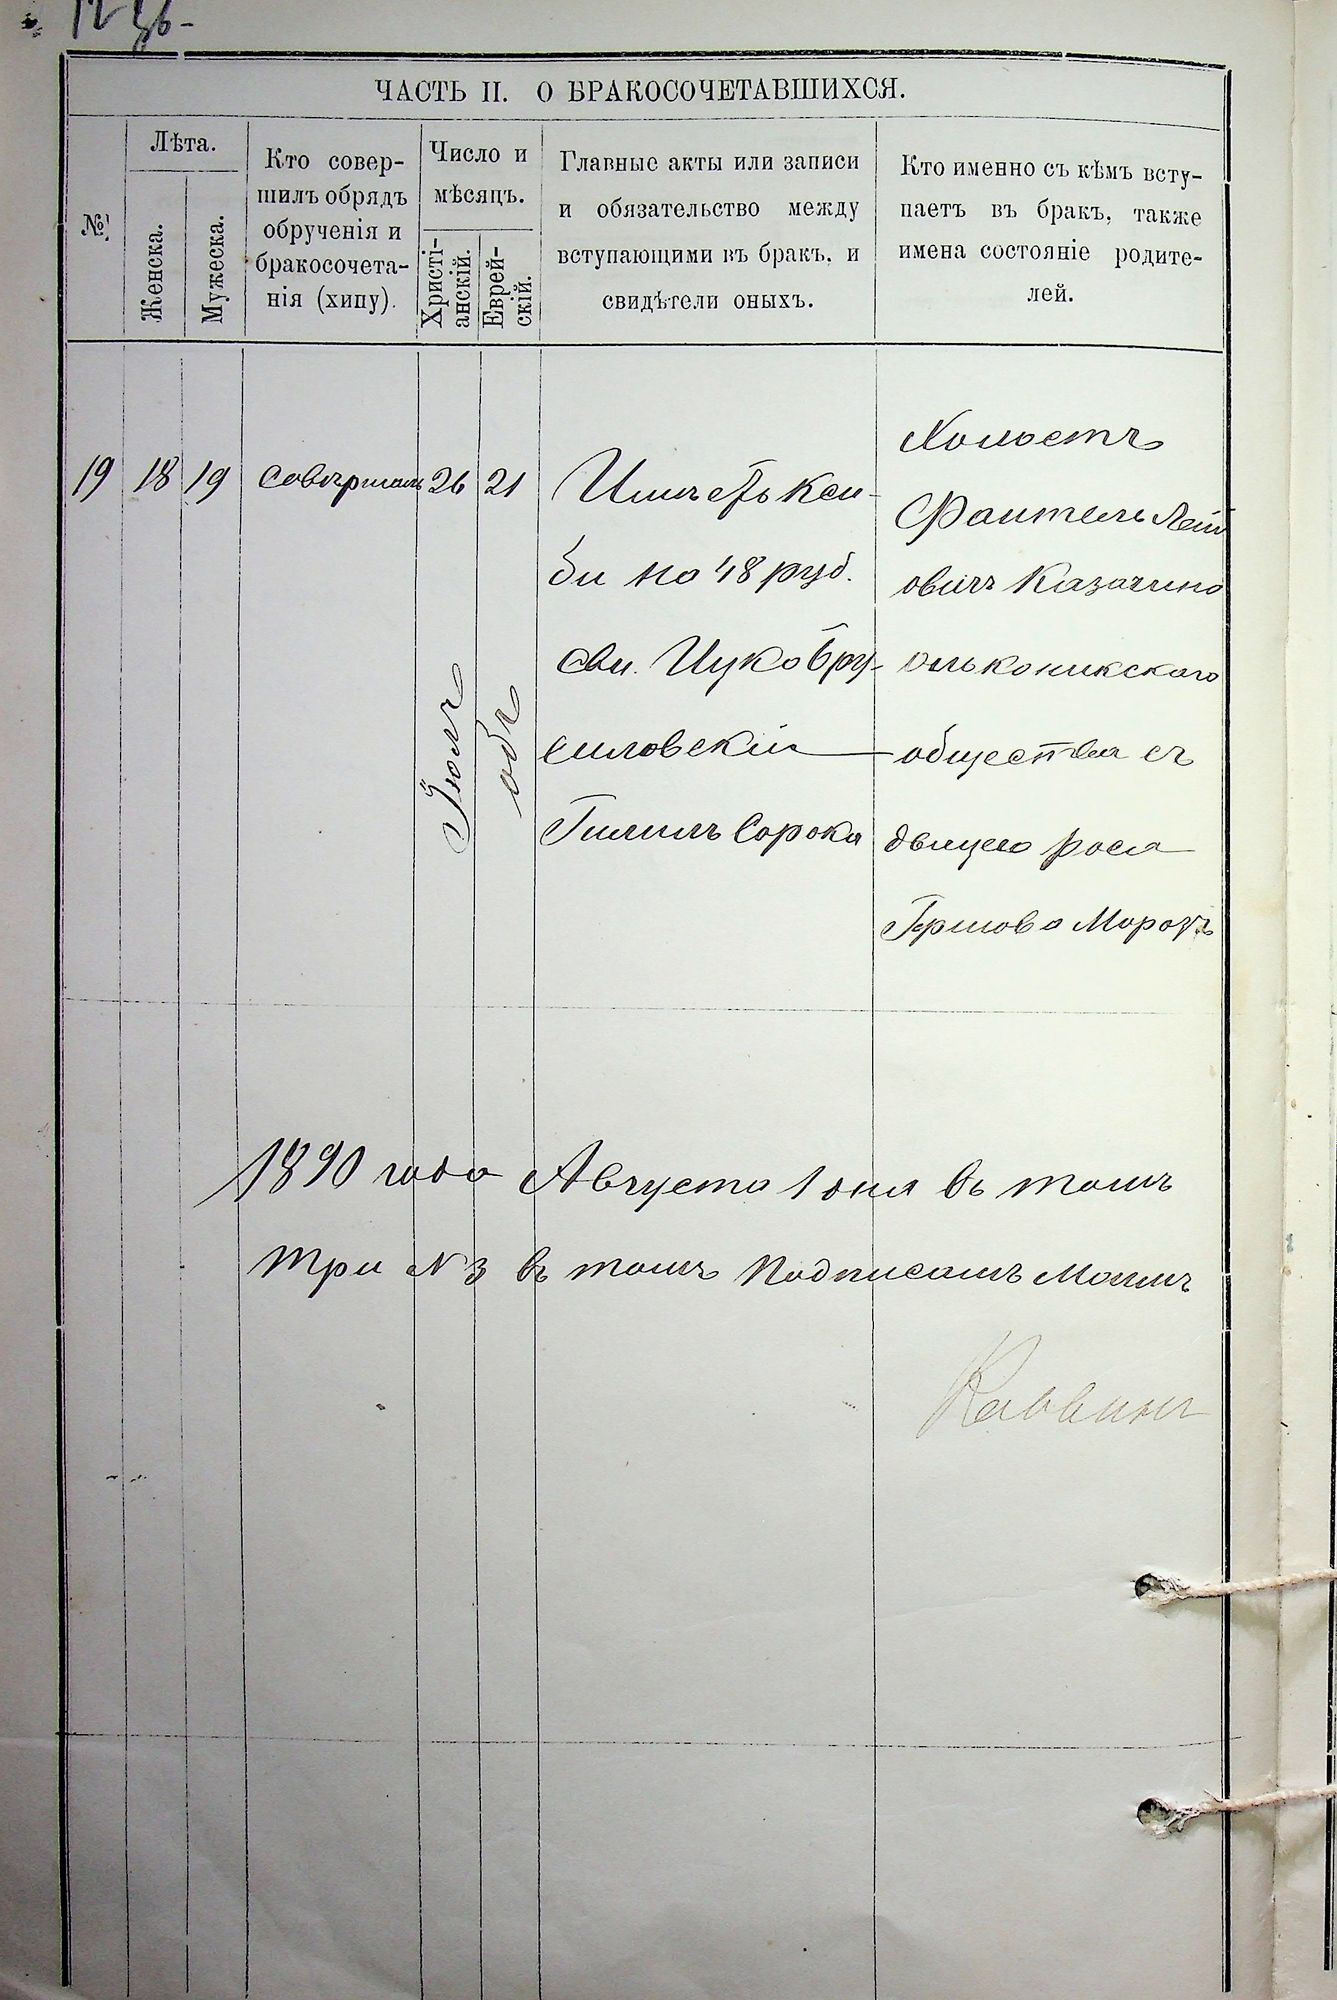 ЧАСТЬ II. О БРАКОСОЧЕТАВШИХСЯ.
№
Лѣта.
Женска.
Мужеска.
Кто совер-
шилъ обрядъ
обрученія и
бракосочета-
нія (хипу).
Число и
мѣсяцъ.
Христі-
анскій.
Еврей-
скій.
Главные акты или записи
и обязательство между
вступающими въ бракъ, и
свидѣтели оныхъ.
Кто именно съ кѣмъ всту-
паетъ въ бракъ, также
имена состояніе родите-
лей.
19
18
19
Совершалъ
26
21
Іюль
объ
Имѣетъ Ксu-
би на 48 руб.
сви. Ицко Бру-
силовскій
Гилилъ Сорока
Холостъ
Файтель Лей
овичъ Казачино
ольконикского
общества съ
дѣвицею Рося
Гершова Морозъ
1890 года Августа 1 дня въ томъ
три N 3 въ томъ Подписамъ Моимъ
Раввинъ